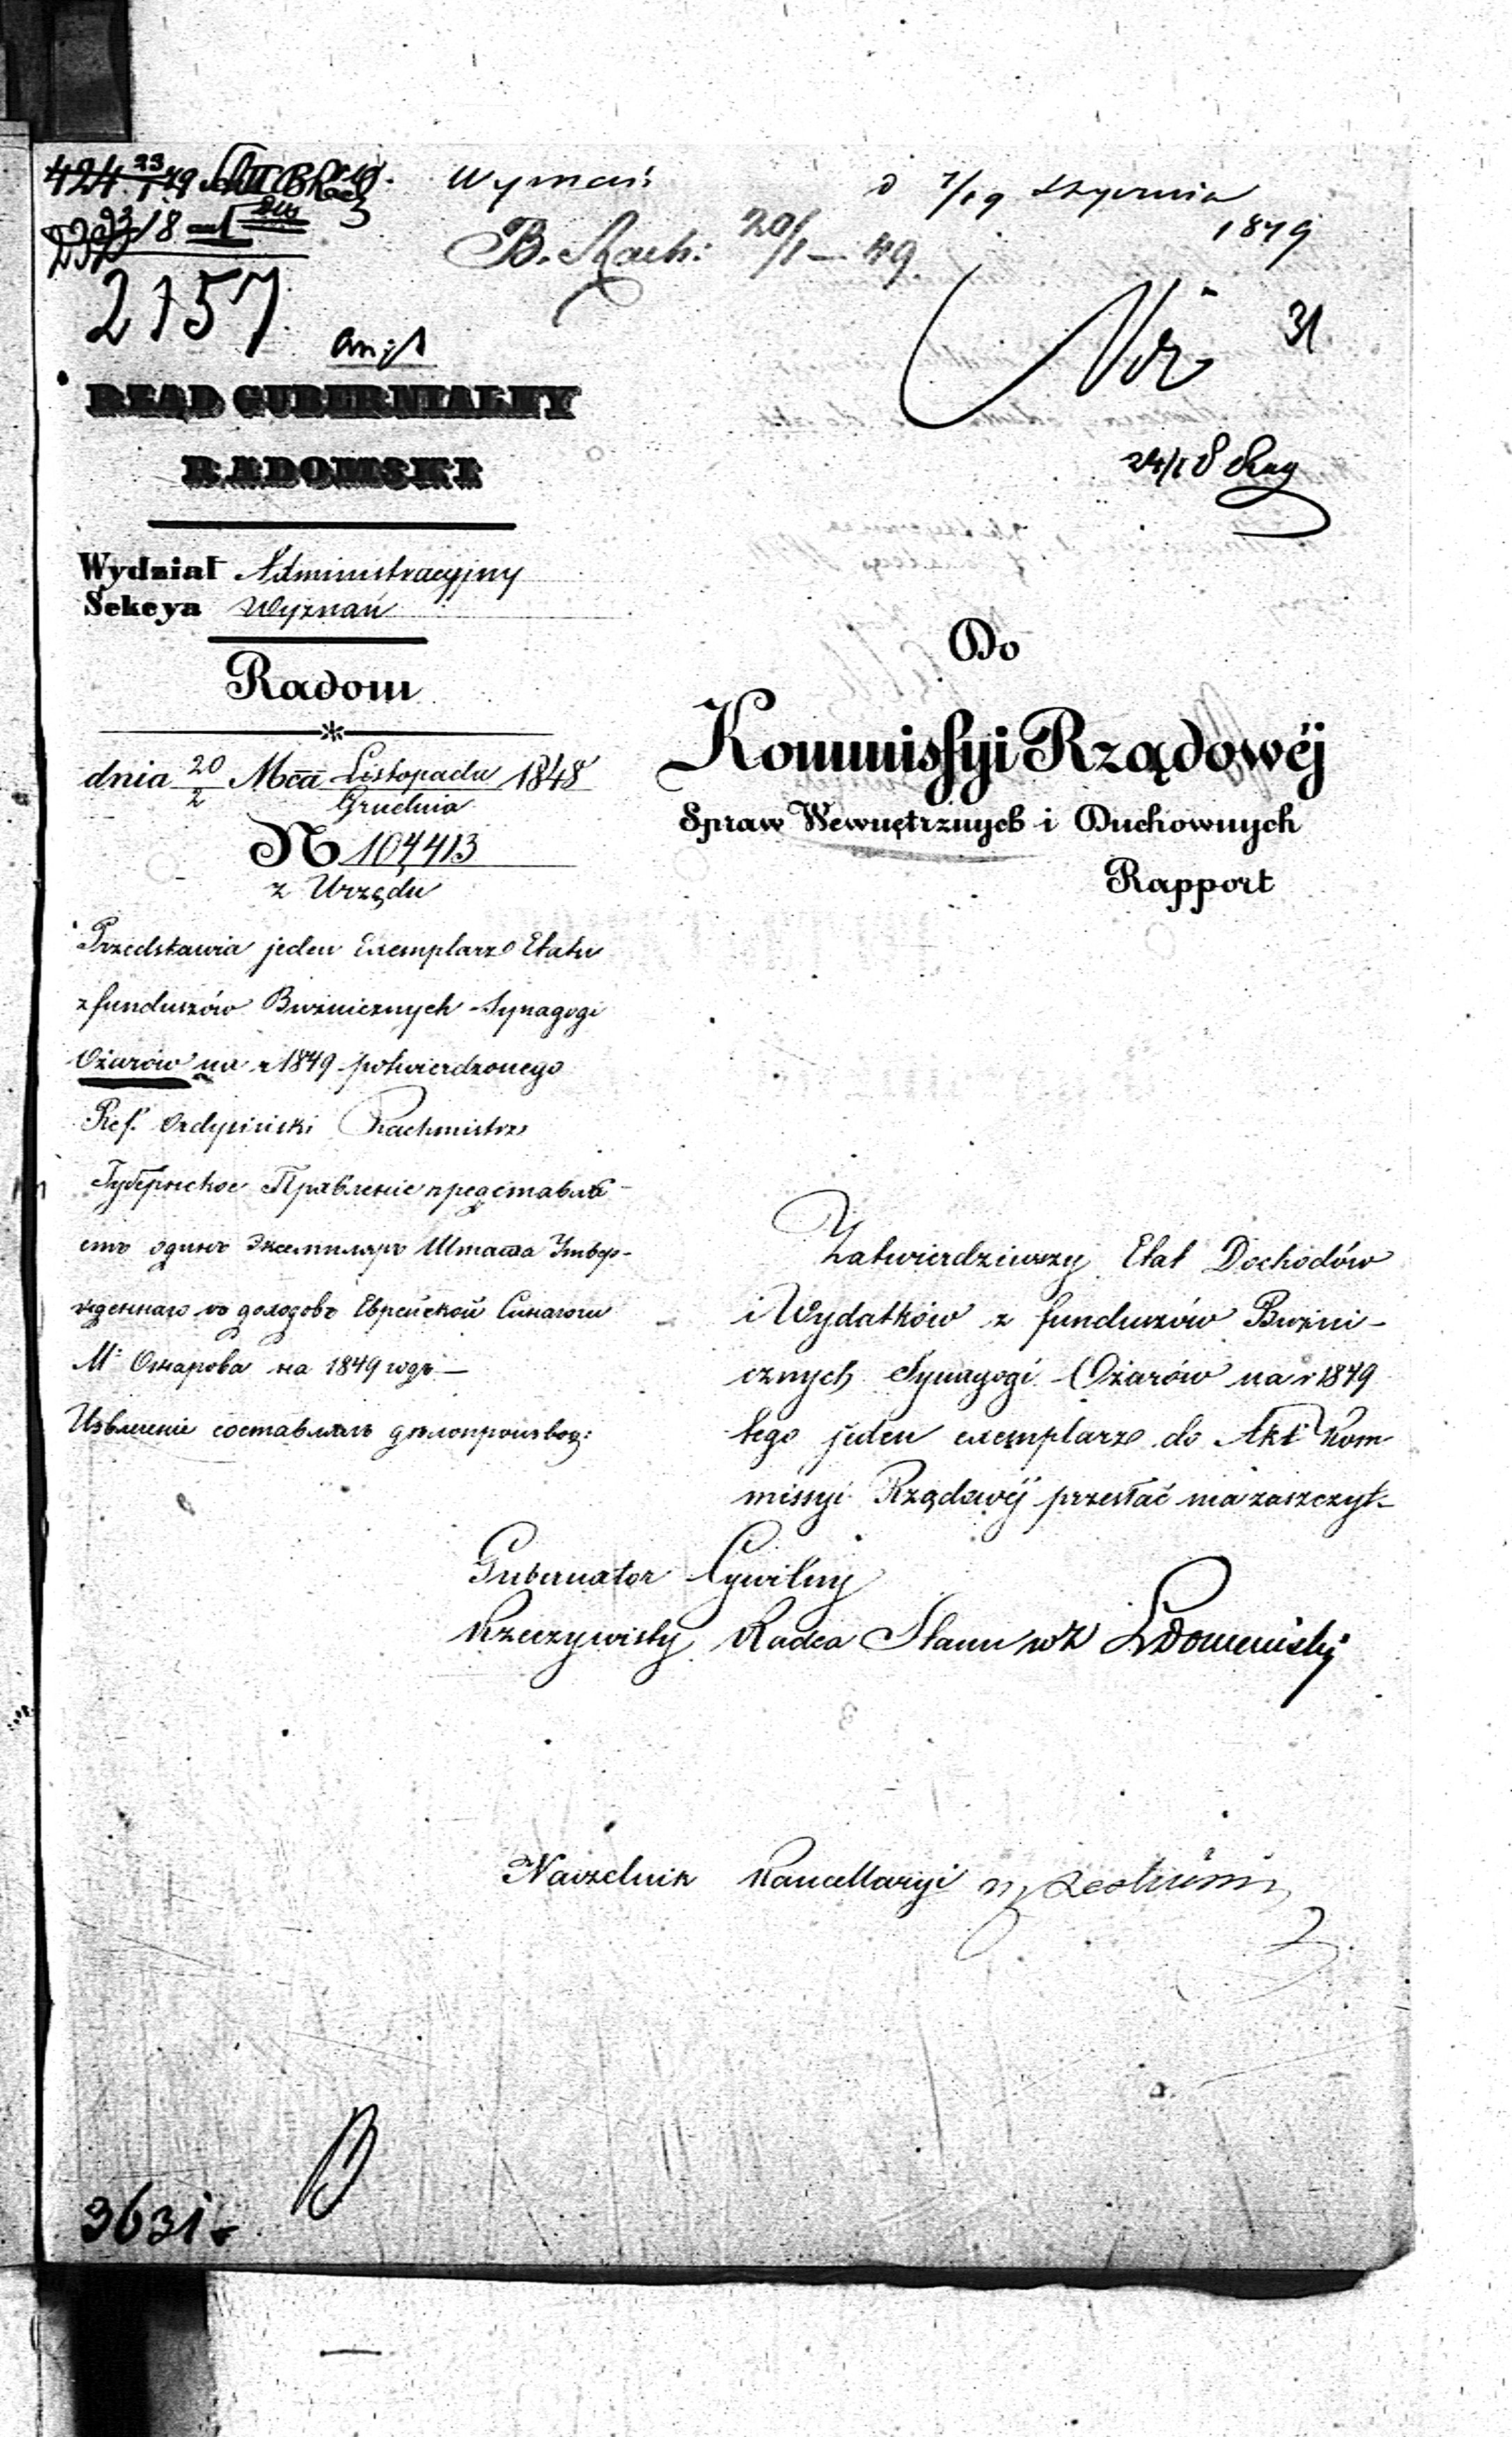 Wyznań
d 7/19 Stycznia
1849
B. Rach: 20/1 — 49.
2157
Nr 31
24/1
RZĄD GUBERNIALNY
RADOMSKI
Wydział Administracyjny
Sekcya Wyznań
Radom
dnia 20/2 Mca Listopada/Grudnia 1848
N 107413
z Urzędu
Przedstawia jeden Exemplarz Etatu
z funduszów Bożnicznych Synagogi
Ożarów na r 1849 potwierdzonego
Ref. Rachmistrz
Губернское Правленіе представля-
етъ одинъ Экземпляръ Штата Утвер-
жденнаго доходовъ Еврейской Синагоги
М. Ожарова на 1849 годъ —
Извлеченіе составлялъ дѣлопроизвод:
Do
Kommissyi Rządowéj
Spraw Wewnętrznych i Duchownych
Rapport
Zatwierdziwszy Etat Dochodów
i Wydatków z funduszów Bożni-
cznych Synagogi Ożarów na r 1849
tego jeden exemplarz do Akt Kom
missyi Rządowéj przesłać ma zaszczyt —
Gubernator Cywilny
Rzeczywisty Radca Stanu
Naczelnik Kancellaryi
3631